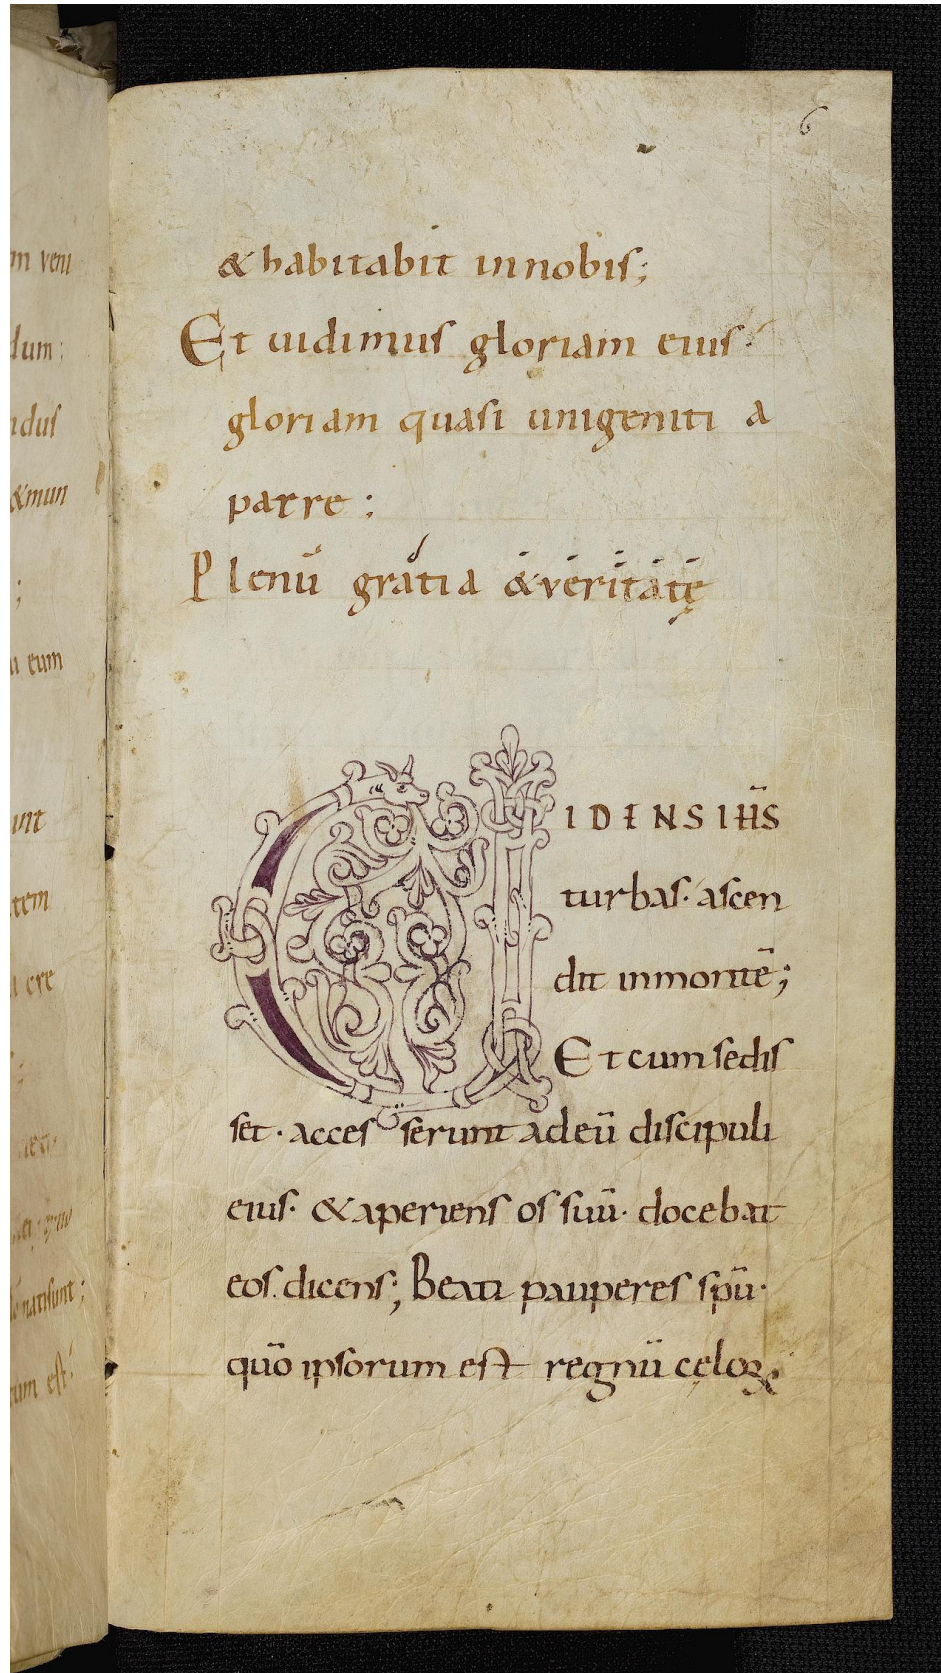 m veni
dum:
ndus
&mun
;
eum
unt
tem
ere
natisunt;
um est
6
& habitabit innobis;
Et uidimus gloriam eius
gloriam quasi unigeniti a
patre:
Plenū gratia & veritatę
UIDENS IHS̄
turbas· ascen
dit inmontē;
Et cum sedis
set· acces serunt adeū discipuli
eius· & aperiens os suū· docebat
eos. dicens; Beati pauperes spū·
quō ipsorum est regnū cęloꝝ·